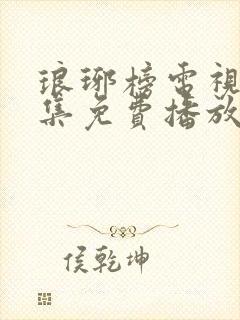 琅琊榜電視
集免費播放
侯乾坤